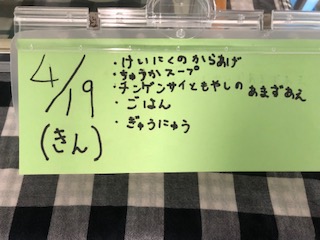 4/19
(きん)
・けいにくのからあげ
・ちゅうかスープ
・チンゲンサイともやしのあまずあえ
・ごはん
・ぎゅうにゅう